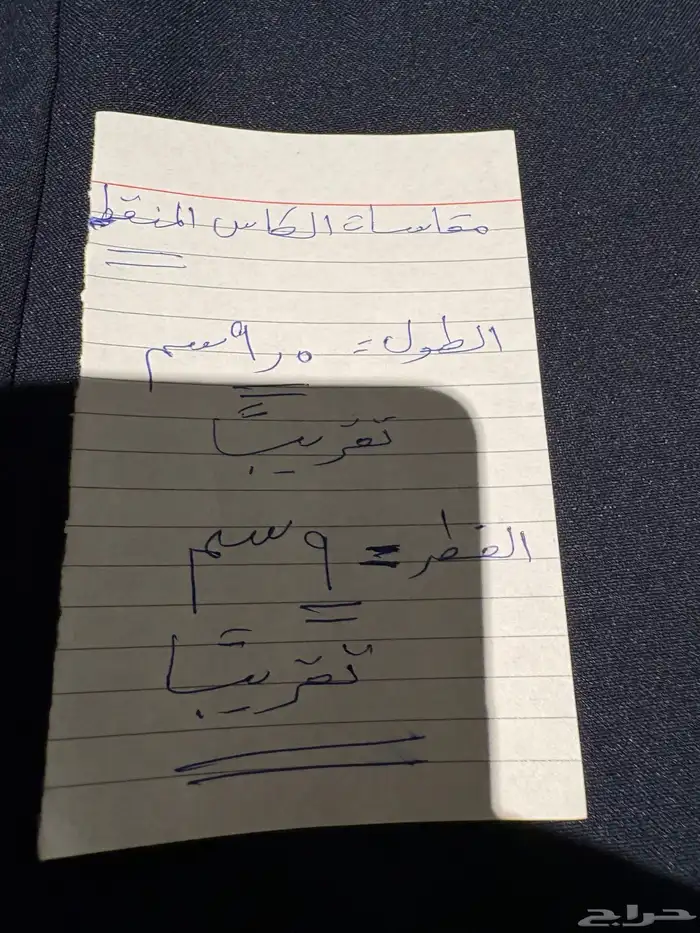 مقاسات الكاس المنقط
الطول = ٩٫٥ سم
تقريباً
القطر = ٩ سم
تقريباً
حراج